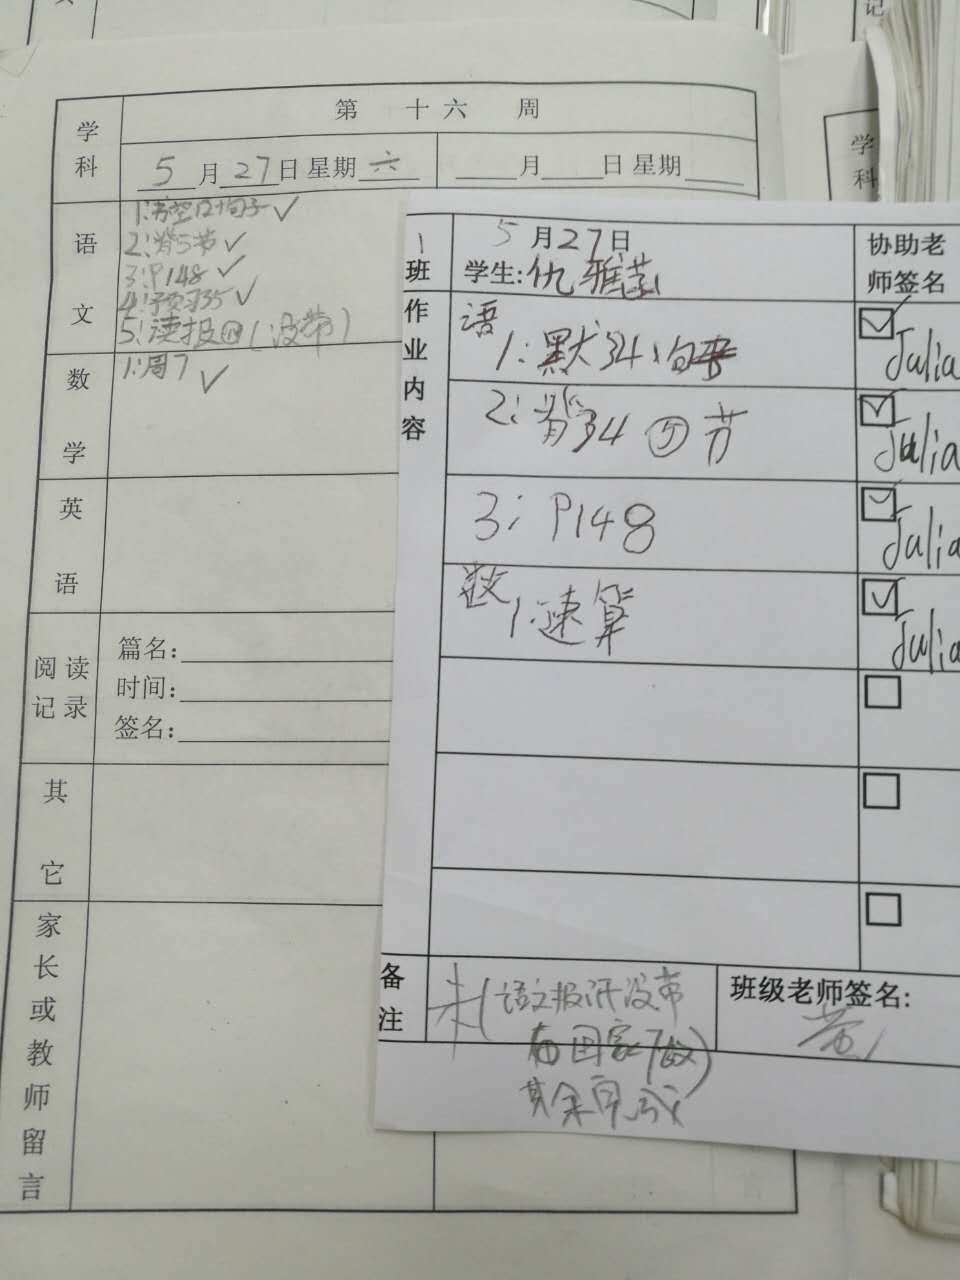 第 十六 周
学科
5月27日 星期六
月 日 星期
语文
2:背5节✓
3:P148✓
4:预习35✓
5:读报④(没带)
数学
1:周7 ✓
英语
阅读记录
篇名:
时间:
签名:
其它
家长或教师留言
学科
1班
5月27日
学生:仇雅
协助老师签名
作业内容
语
1:默34、句
Julia
2:背34⑤节
Julia
3:P148
Julia
数
1:速算
Julia
备注
语文报没带
回家做)
其余完成
班级老师签名:
黄